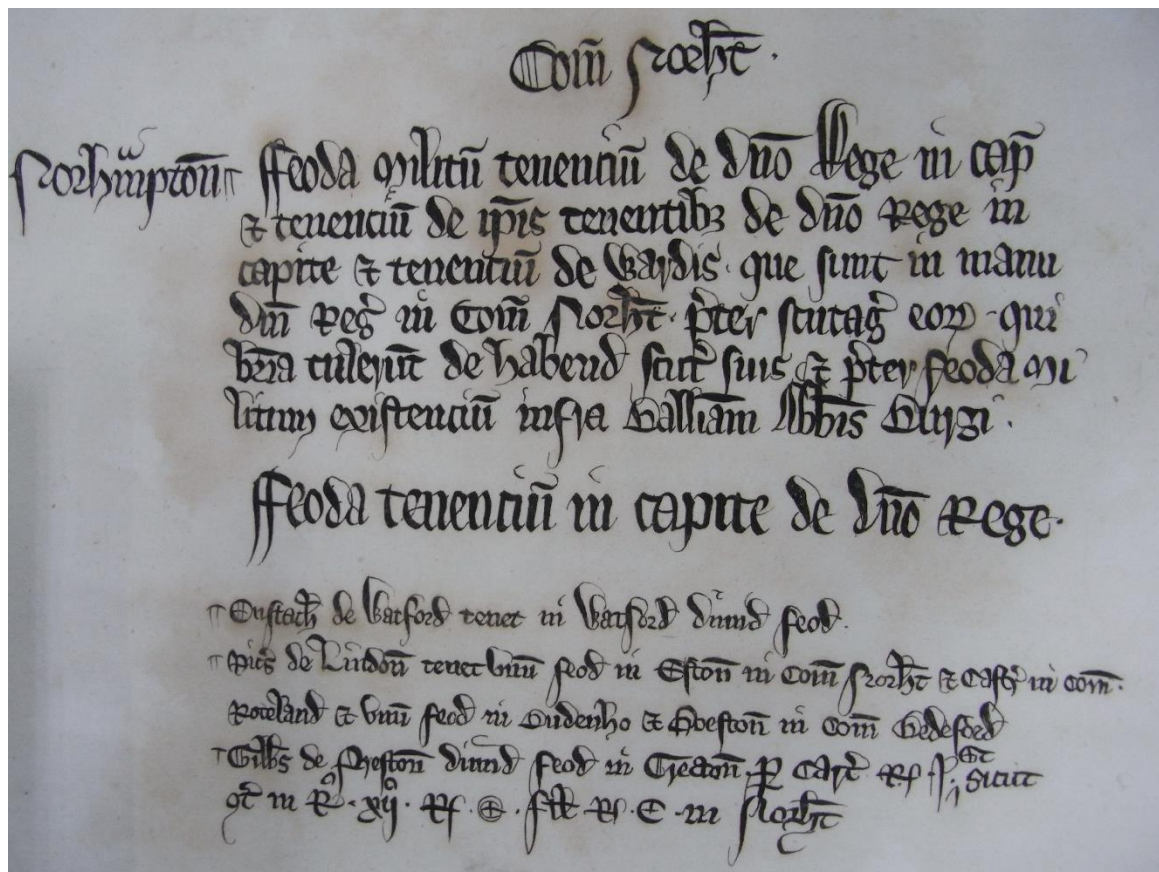 Com̄ Norht̄.
Norhāmpton̄ ffeoda Militū tenenciū de dn̄o Rege in cap̄
⁊ tenenciū de ip̄is tenentibꝫ de dn̄o Rege in
capite ⁊ tenentiū de Wardis. que sunt in manu
dn̄i Reg̃ in Com̄ Norht̄. p̄ter scutag̃ eoꝝ. qui
br̄ia tulerūt de habend̃ scut̃ suis ⁊ p̄ter feoda mi
litum existenciū infra Balliam̄ Abb̄is Burgi.
ffeoda tenenciū in capite de dn̄o Rege.
Eustach̃ de Watford̃ tenet in Watford̃ dimid̃ feod̃.
de Lindon̄ tenet vnū feod̃ in Eston̄ in Com̄ Norht̄ ⁊ Cast̃ in com̄.
Roteland̃ ⁊ vnū feod̃ in Budenho ⁊ Hoeston̄ in Com̄ Bedeford̃
Gilb̄s de Preston̄ dimid̃ feod̃ in Creton̄ ꝑ Cart̃ sicut
in xij E in Norht̄